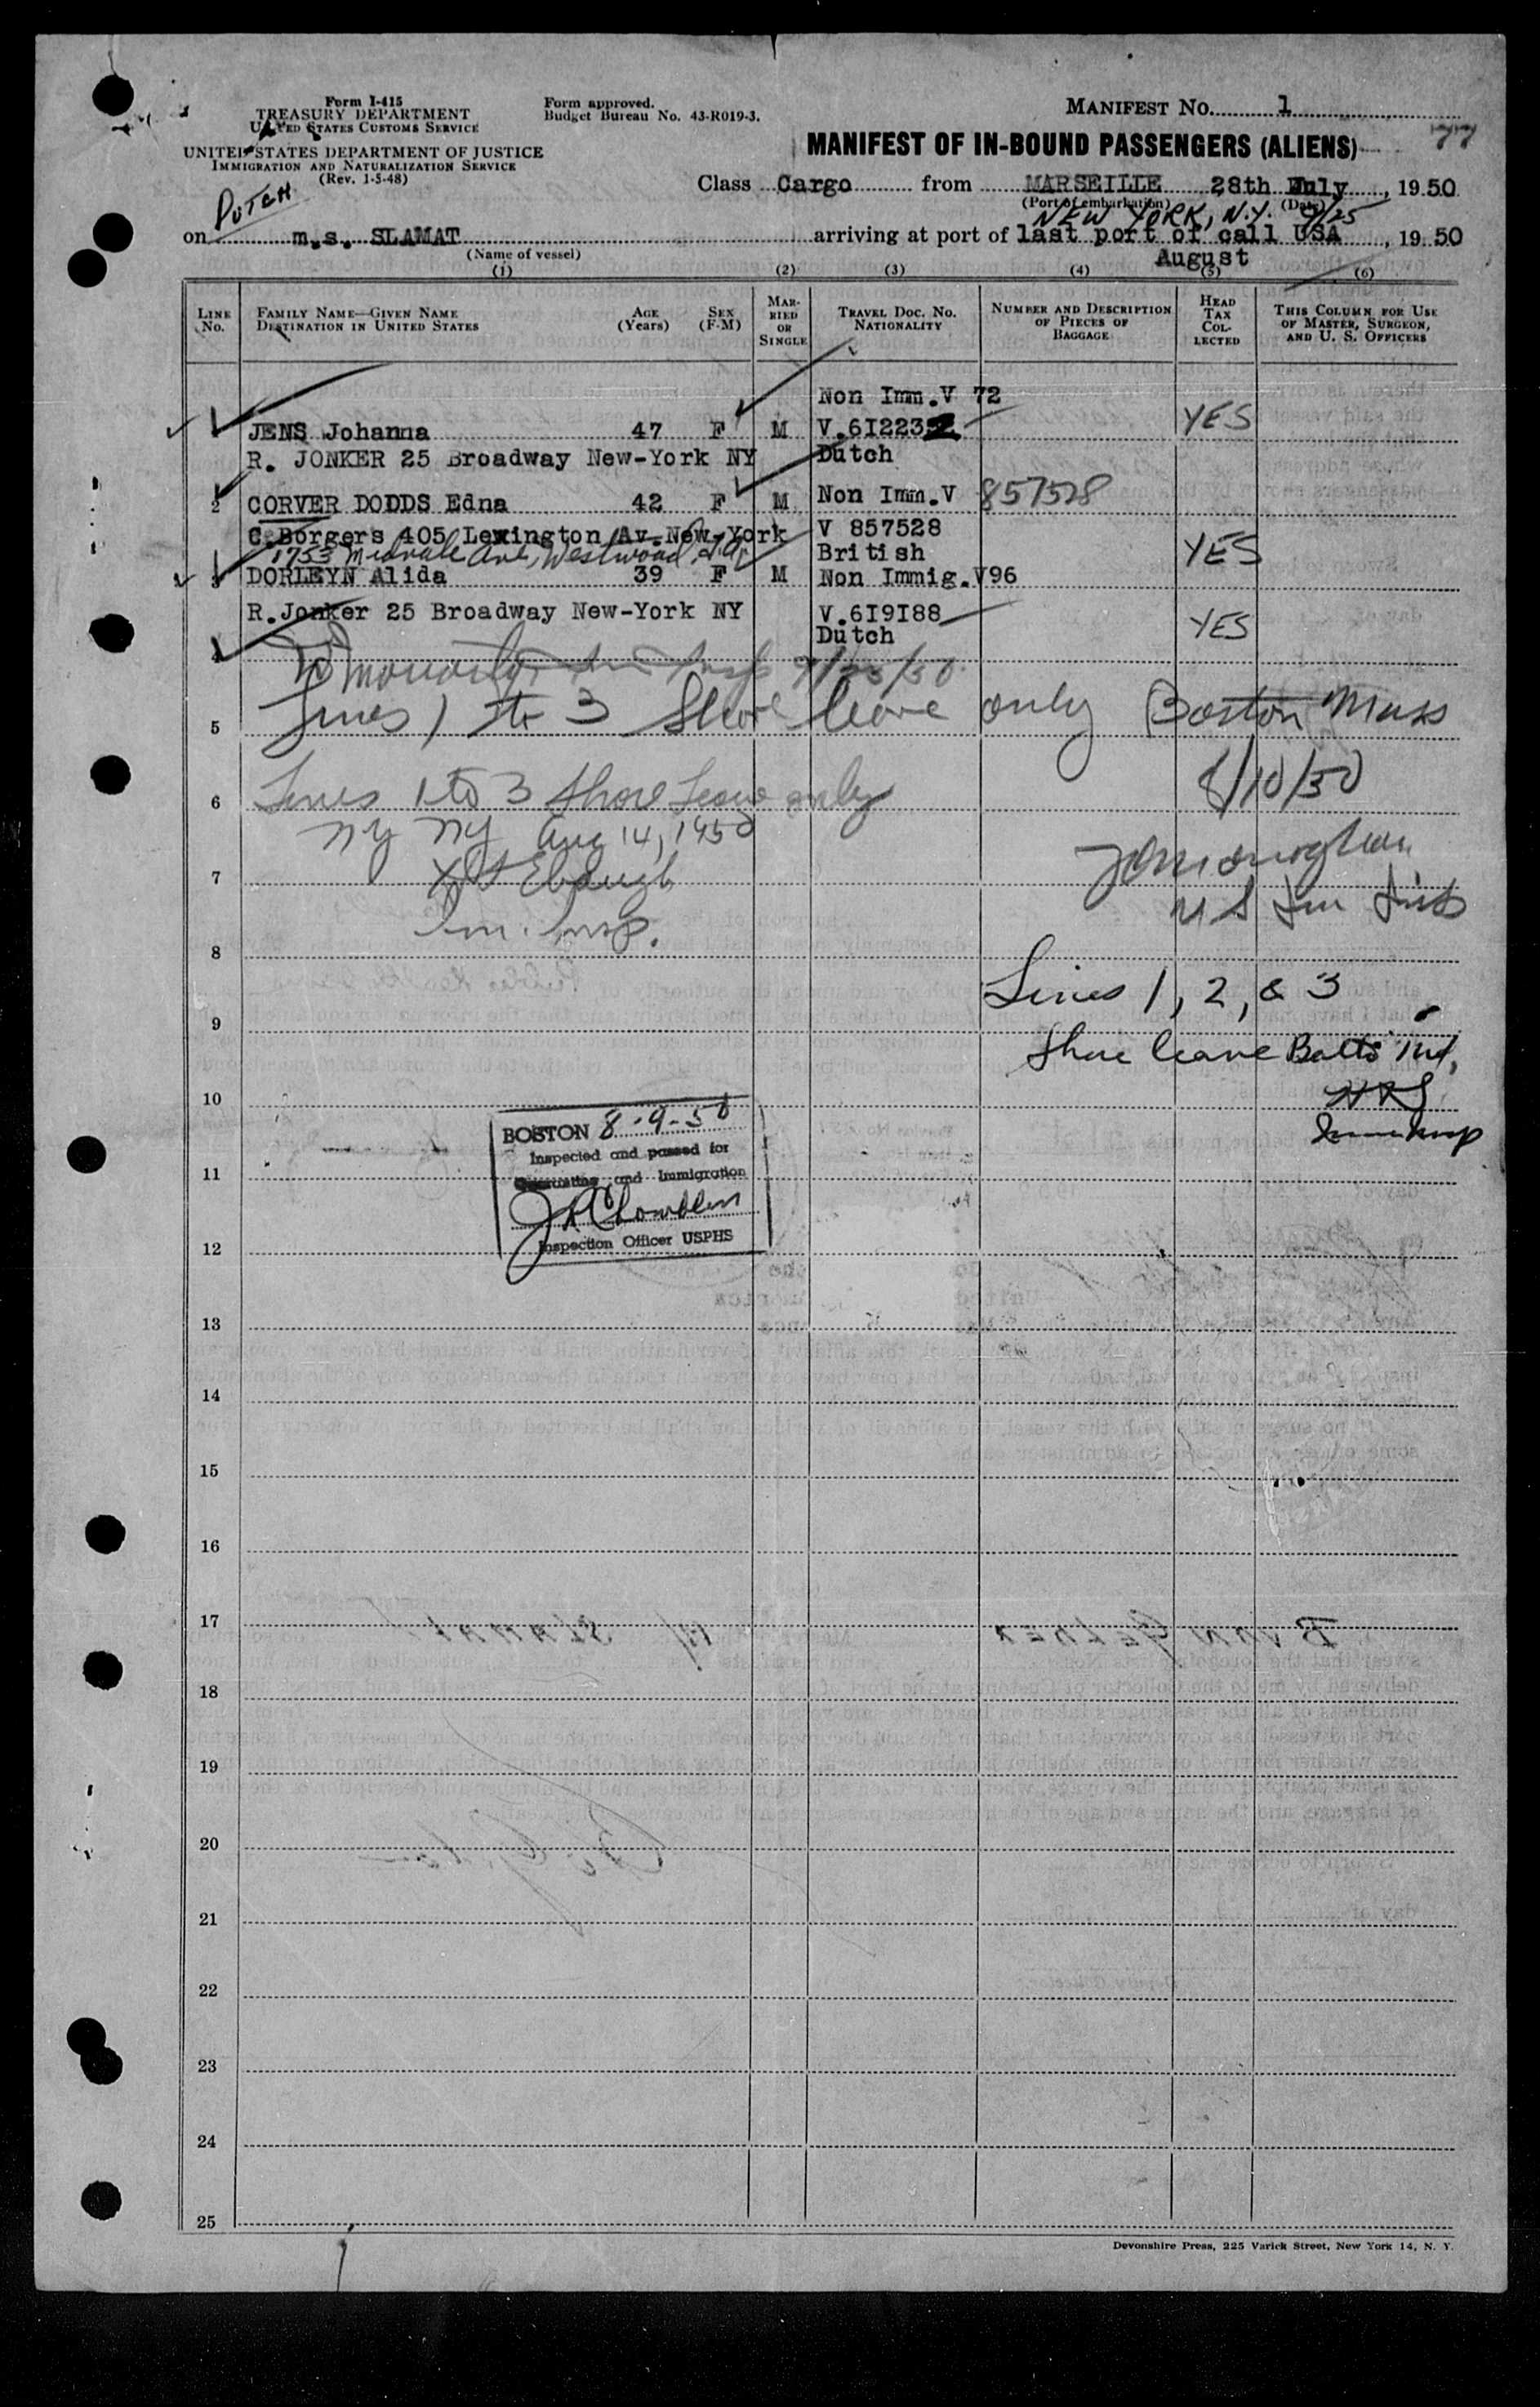 Form I-415
TREASURY DEPARTMENT
UNITED STATES CUSTOMS SERVICE
UNITED STATES DEPARTMENT OF JUSTICE
IMMIGRATION AND NATURALIZATION SERVICE
(Rev. 1-5-48)
Form approved.
Budget Bureau No. 43-R019-3.
MANIFEST No. 1
MANIFEST OF IN-BOUND PASSENGERS (ALIENS) 77
Class Cargo from MARSEILLE 28th July, 1950
(Port of embarkation) (Date)
DUTCH
NEW YORK, N.Y. 9/25
on m.s. SLAMAT arriving at port of last port of call USA, 1950
(Name of vessel)
August
(1) (2) (3) (4) (5) (6)
LINE No.
FAMILY NAME—GIVEN NAME
DESTINATION IN UNITED STATES
AGE (Years)
SEX (F-M)
MARRIED OR SINGLE
TRAVEL DOC. NO.
NATIONALITY
NUMBER AND DESCRIPTION OF PIECES OF BAGGAGE
HEAD TAX COLLECTED
THIS COLUMN FOR USE OF MASTER, SURGEON, AND U. S. OFFICERS
Non Imm.V 72
JENS Johanna 47 F M V.6I2232 YES
R. JONKER 25 Broadway New-York NY Dutch
2 CORVER DODDS Edna 42 F M Non Imm.V 857528
C.Borgers 405 Lexington Av.New-York V 857528
1753 Midvale Ave, Westwood, L.A. British YES
3 DORLEYN Alida 39 F M Non Immig.V96
R.Jonker 25 Broadway New-York NY V.6I9I88 YES
Dutch
4 9/25/50
5 Lines 1 to 3 Shore leave only Boston Mass
8/10/50
6 Lines 1 to 3 Shore Leave only
NY NY Aug 14, 1950
7 Ebaugh
Im. Insp.
U S Im Insp
8
Lines 1, 2, & 3
9
Shore leave Balto Md,
10
HRS
BOSTON 8-9-50
Inspected and passed for
Quarantine and Immigration
11
Inspection Officer USPHS
12
13
14
15
16
17
18
19
20
21
22
23
24
25
Devonshire Press, 225 Varick Street, New York 14, N. Y.